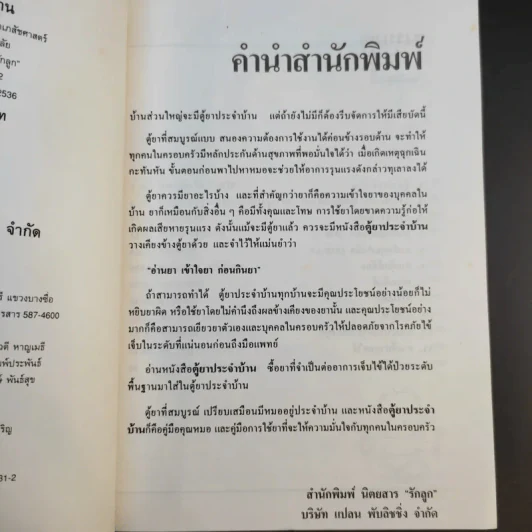 ้าน
เภสัชศาสตร์
ลัย
"รักลูก"
2
2536
ท
จำกัด
รี แขวงบางซื่อ
รสาร 587-4600
วดี หาญเมธี
พ์ประพันธ์
ษ์ พันธ์สุข
ริญ
31-2
คำนำสำนักพิมพ์
บ้านส่วนใหญ่จะมีตู้ยาประจำบ้าน แต่ถ้ายังไม่มีก็ต้องรีบจัดการให้มีเสียบัดนี้
ตู้ยาที่สมบูรณ์แบบ สนองความต้องการใช้งานได้ค่อนข้างรอบด้าน จะทำให้
ทุกคนในครอบครัวมีหลักประกันด้านสุขภาพที่พอมั่นใจได้ว่า เมื่อเกิดเหตุฉุกเฉิน
กะทันหัน ขั้นตอนก่อนพาไปหาหมอจะช่วยให้อาการรุนแรงดังกล่าวทุเลาลงได้
ตู้ยาควรมียาอะไรบ้าง และที่สำคัญกว่ายาก็คือความเข้าใจยาของบุคคลใน
บ้าน ยาก็เหมือนกับสิ่งอื่น ๆ คือมีทั้งคุณและโทษ การใช้ยาโดยขาดความรู้ก่อให้
เกิดผลเสียหายรุนแรง ดังนั้นแม้จะมีตู้ยาแล้ว ควรจะมีหนังสือตู้ยาประจำบ้าน
วางเคียงข้างตู้ยาด้วย และจำไว้ให้แม่นยำว่า
"อ่านยา เข้าใจยา ก่อนกินยา"
ถ้าสามารถทำได้ ตู้ยาประจำบ้านทุกบ้านจะมีคุณประโยชน์อย่างน้อยก็ไม่
หยิบยาผิด หรือใช้ยาโดยไม่คำนึงถึงผลข้างเคียงของยานั้น และคุณประโยชน์อย่าง
มากก็คือสามารถเยียวยาตัวเองและบุคคลในครอบครัวให้ปลอดภัยจากโรคภัยไข้
เจ็บในระดับที่แน่นอนก่อนถึงมือแพทย์
อ่านหนังสือตู้ยาประจำบ้าน ซื้อยาที่จำเป็นต่อการเจ็บไข้ได้ป่วยระดับ
พื้นฐานมาใส่ในตู้ยาประจำบ้าน
ตู้ยาที่สมบูรณ์ เปรียบเสมือนมีหมออยู่ประจำบ้าน และหนังสือตู้ยาประจำ
บ้านก็คือคู่มือคุณหมอ และคู่มือการใช้ยาที่จะให้ความมั่นใจกับทุกคนในครอบครัว
สำนักพิมพ์ นิตยสาร "รักลูก"
บริษัท แปลน พับลิชชิ่ง จำกัด